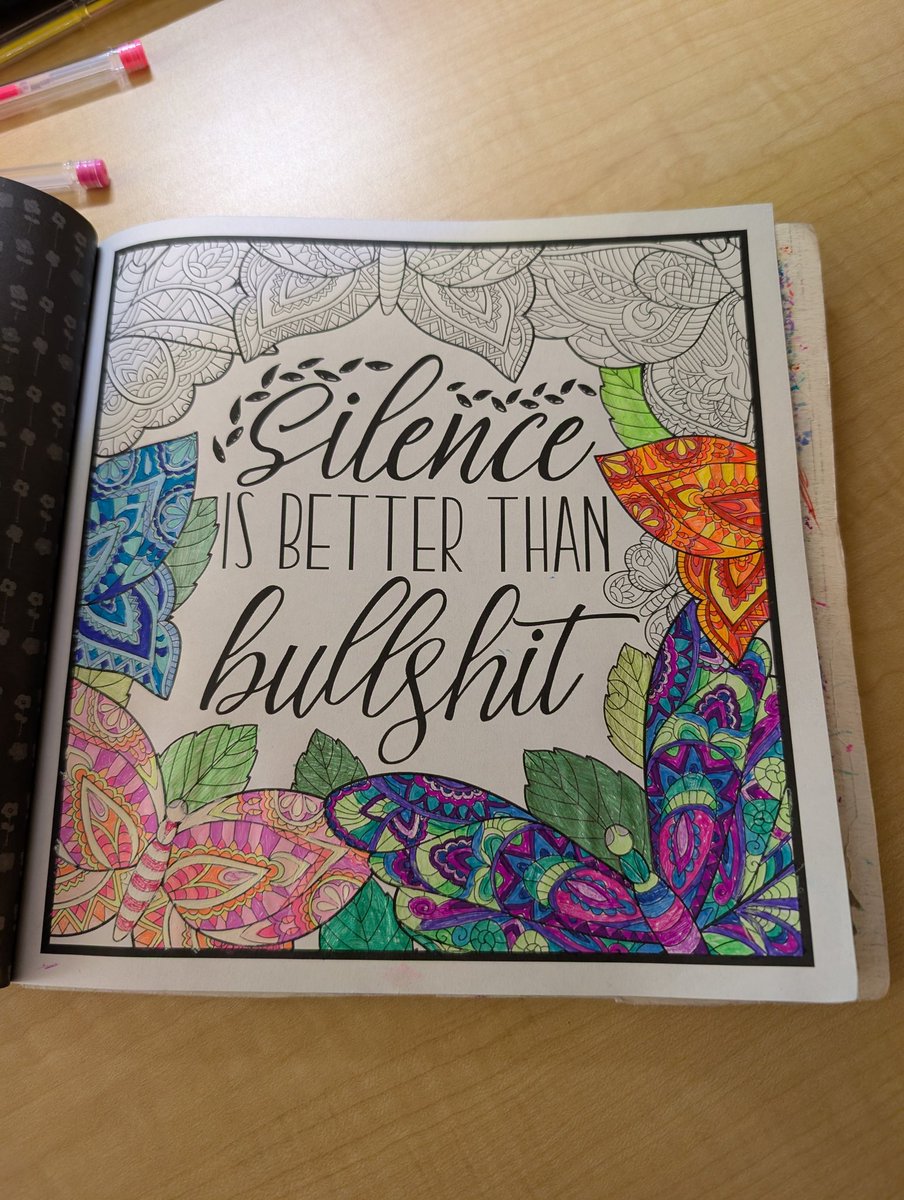 Silence
IS BETTER THAN
bullshit